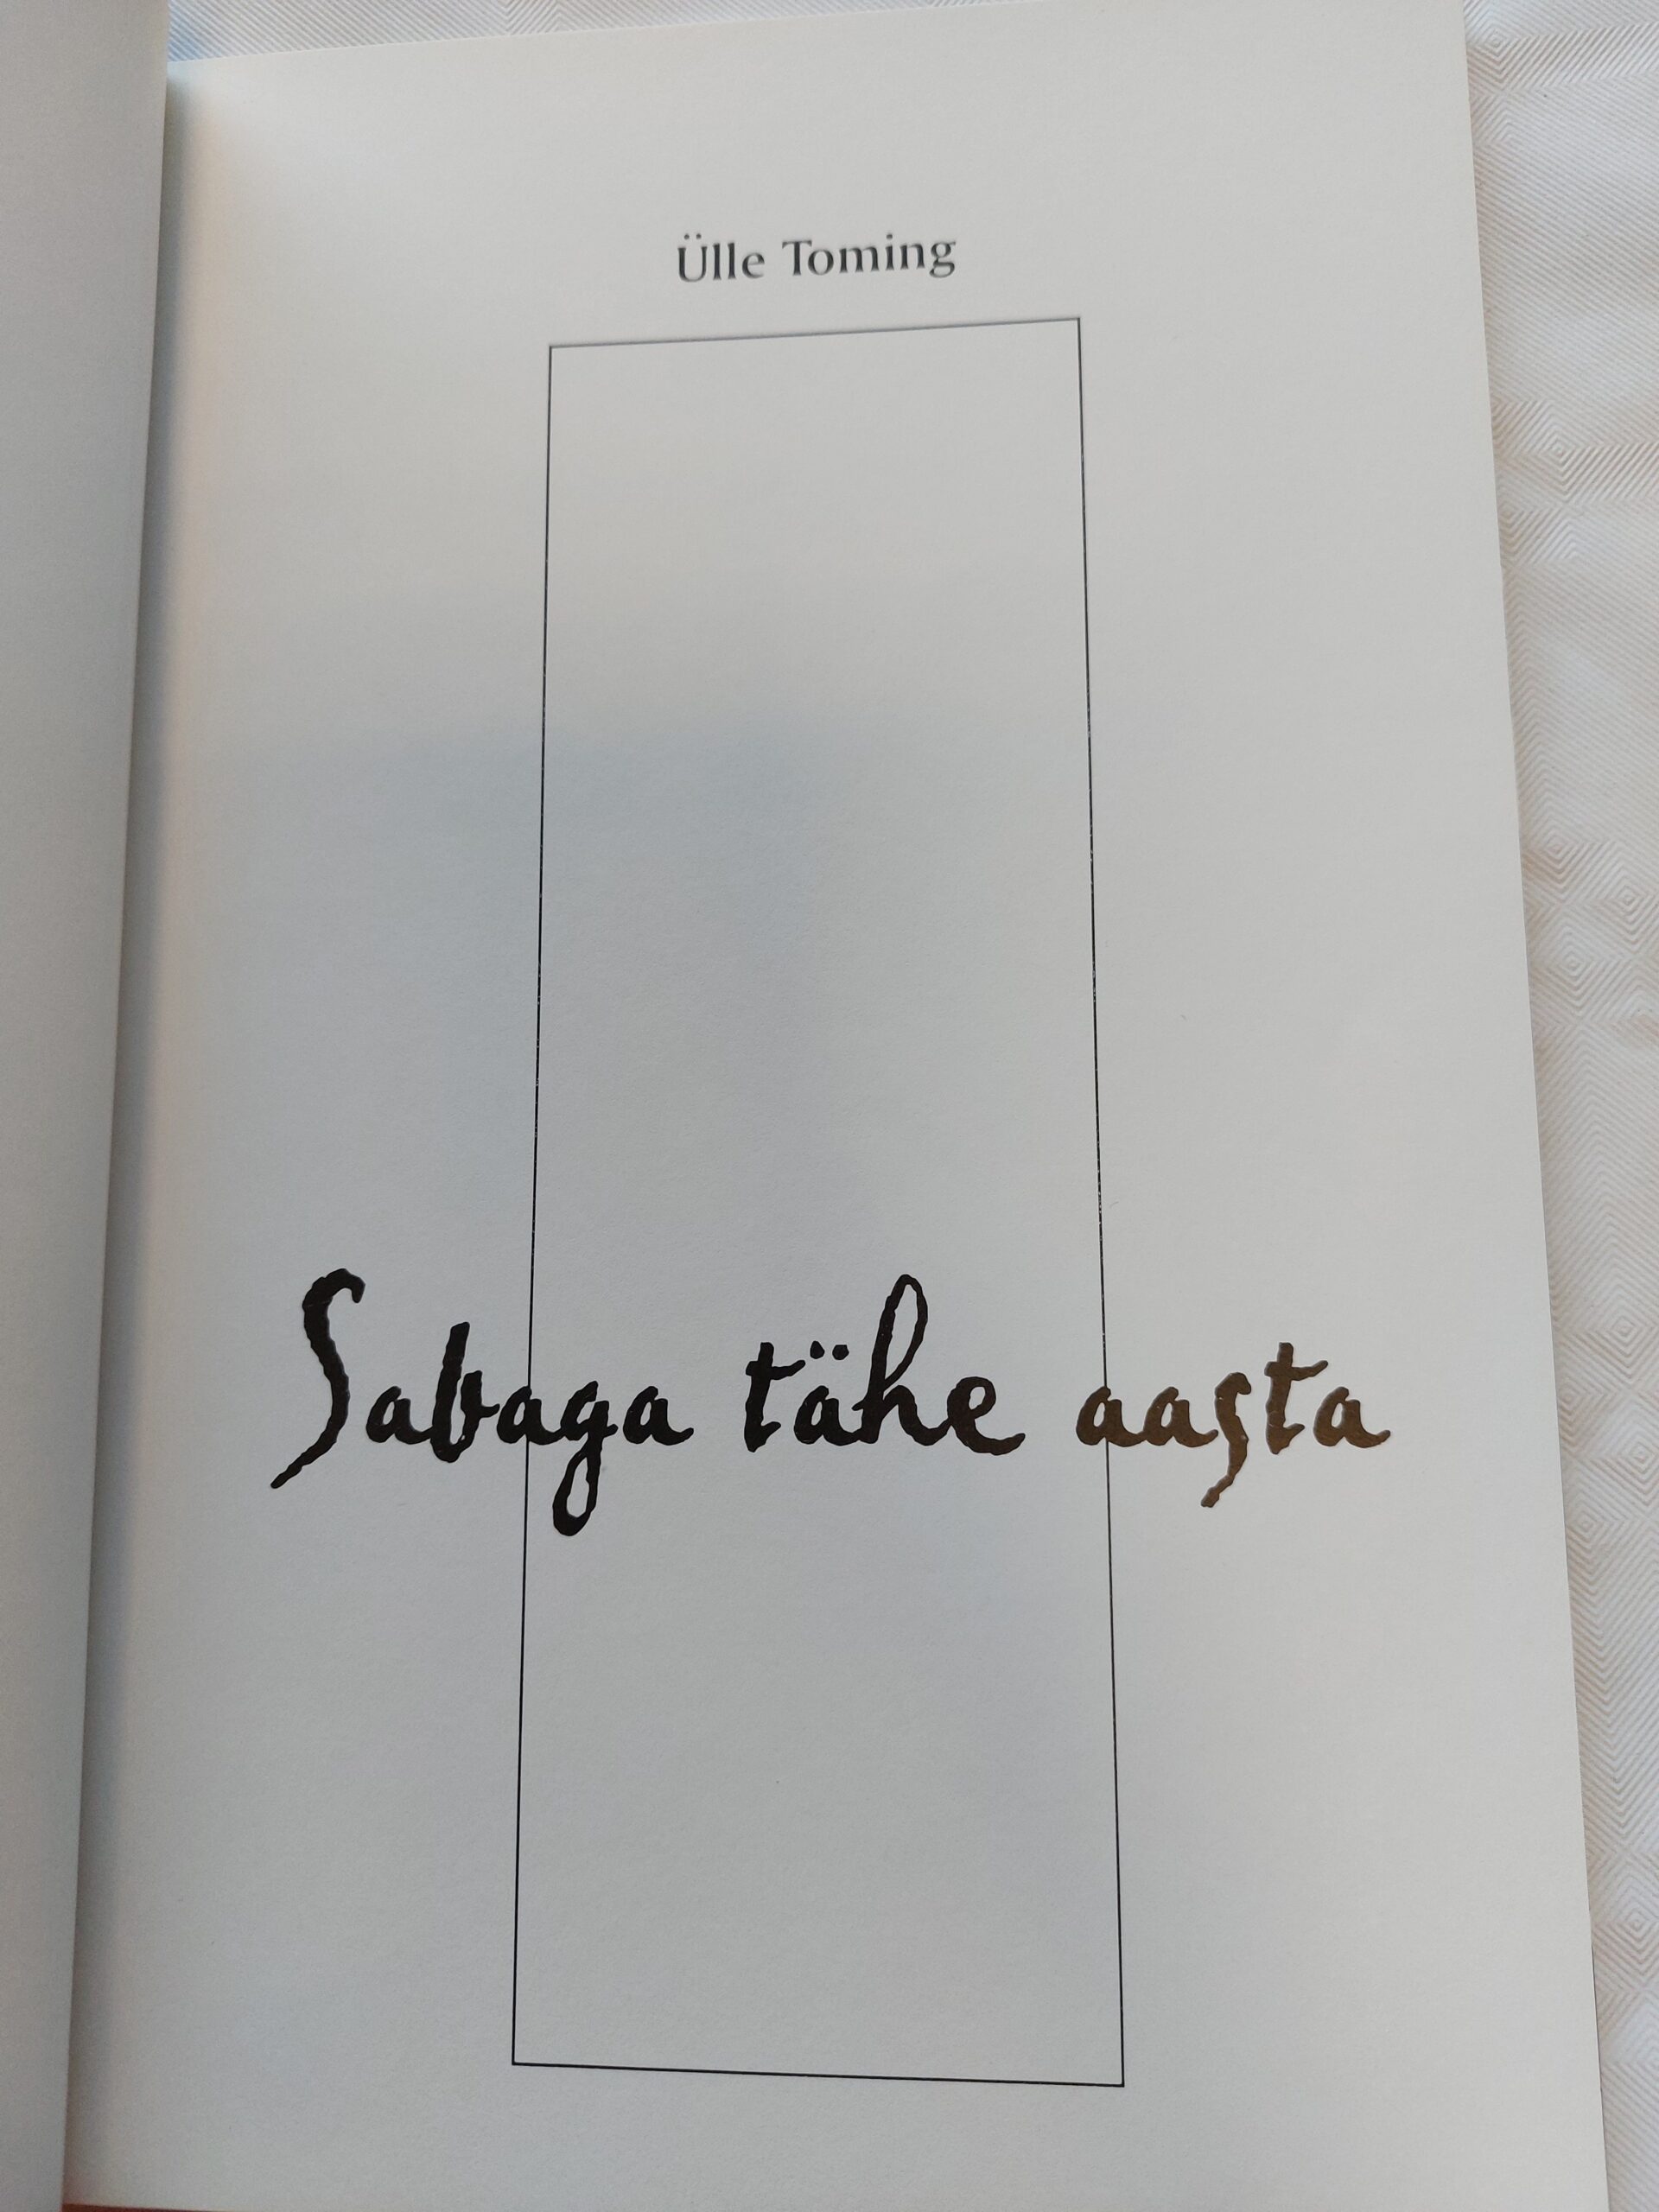 Ülle Toming
Sabaga tähe aasta